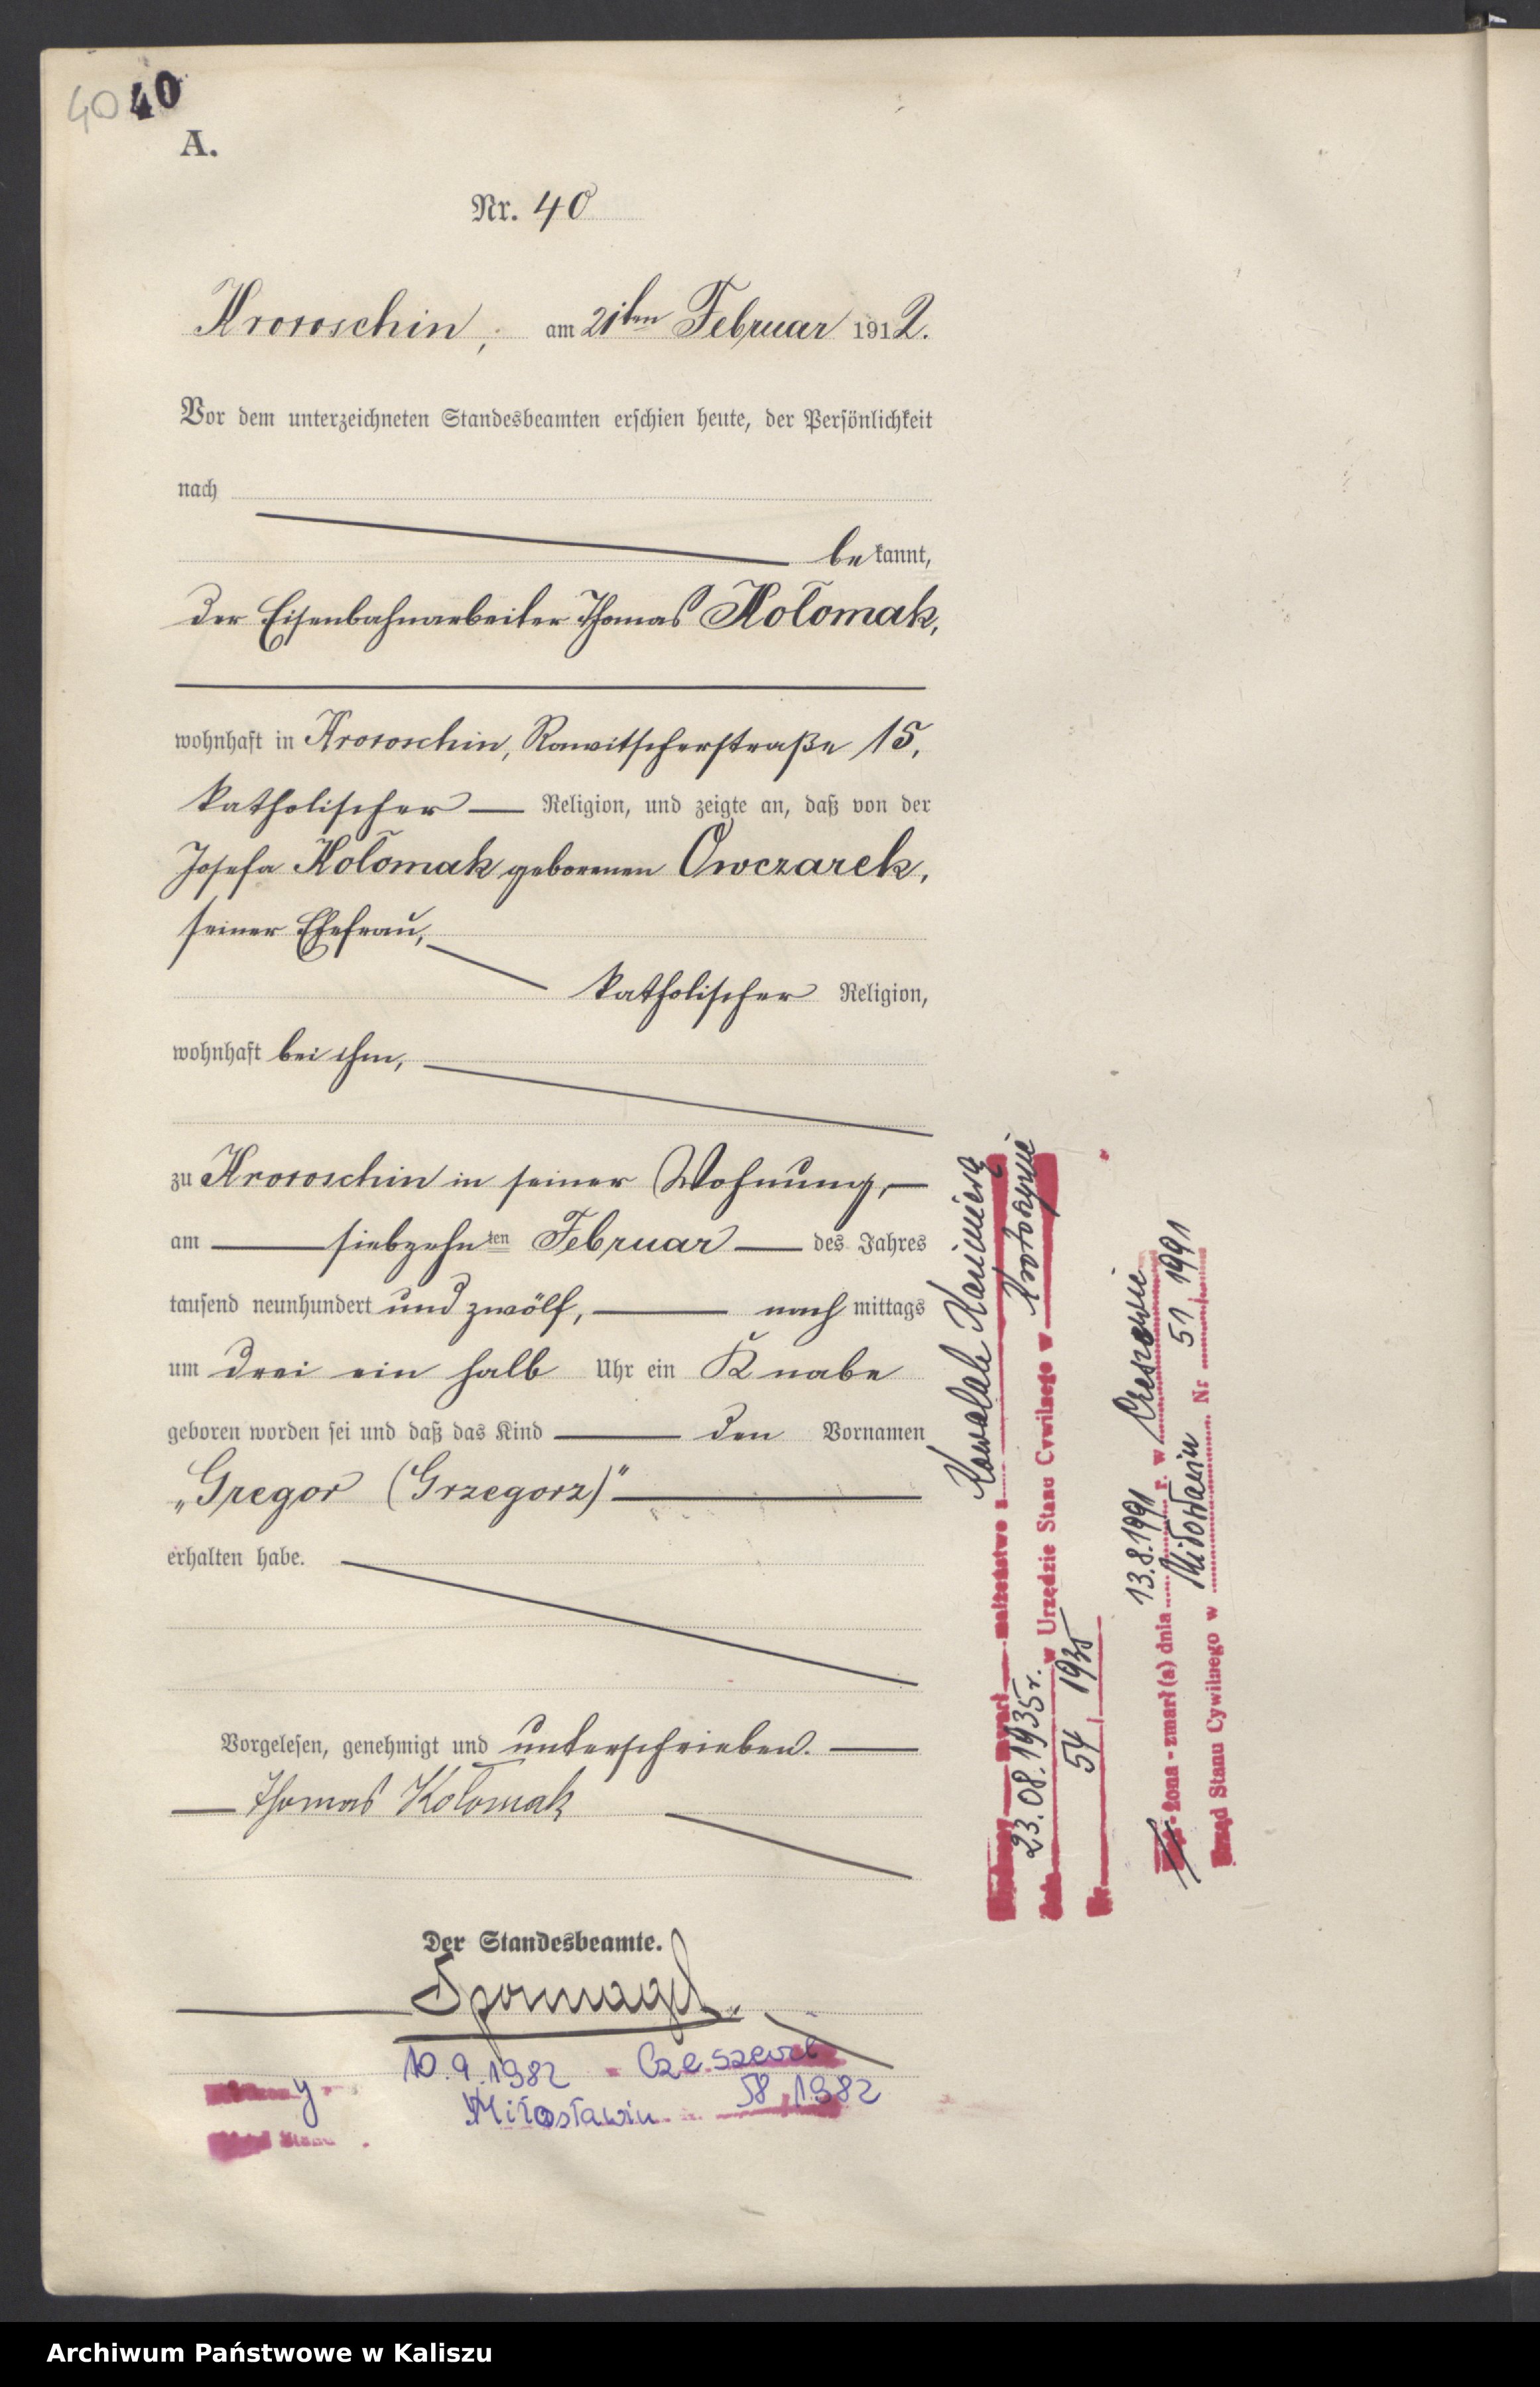 40 40
A.
Nr. 40
Krotoschin, am 21ten Februar 1912.
Vor dem unterzeichneten Standesbeamten erschien heute, der Persönlichkeit
nach
bekannt,
der Eisenbahnarbeiter Thomas Kołomak,
wohnhaft in Krotoschin, Rawitscherstraße 15,
katholischer Religion, und zeigte an, daß von der
Josefa Kołomak geborenen Owczarek,
seiner Ehefrau,
katholischer Religion,
wohnhaft bei ihm,
zu Krotoschin in seiner Wohnung,
am siebzehnten Februar des Jahres
tausend neunhundert und zwölf, nachmittags
um drei ein halb Uhr ein Knabe
geboren worden sei und daß das Kind den Vornamen
„Gregor (Grzegorz)"
erhalten habe.
Vorgelesen, genehmigt und unterschrieben.
Thomas Kołomak
Der Standesbeamte.
Sponnagel.
10.9.1982 Czeszewie
Miłosławiu 58 1982
małżeństwo z Kowalak Kazimierą
23.08.1935 r. w Urzędzie Stanu Cywilnego w Krotoszynie
Nr 54 1935
żona - zmarł(a) dnia 13.8.1991 r. w Czeszewie
Urząd Stanu Cywilnego w Miłosławiu Nr 51 1991
Archiwum Państwowe w Kaliszu